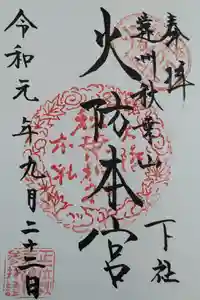 奉拝
遠州秋葉山
火防本宮
下社
令和元年九月二十二日